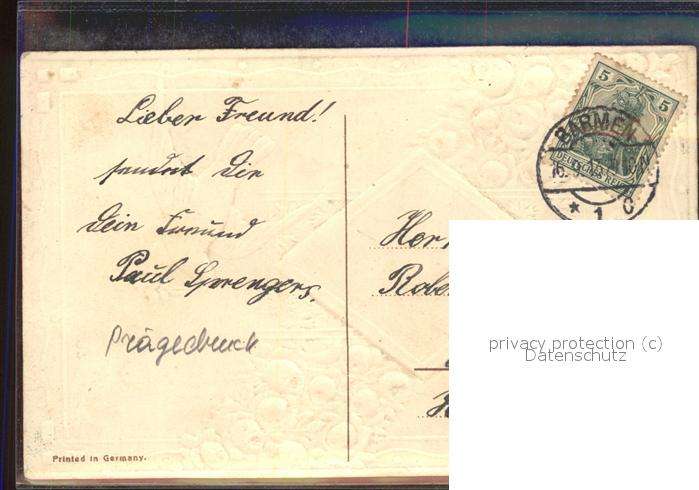 Lieber Freund!
sendet Dir
Dein Freund
Paul Sprengers.
Prägedruck
Printed in Germany.
5 5
BARMEN
* 1 c
Her
Robe
privacy protection (c)
Datenschutz